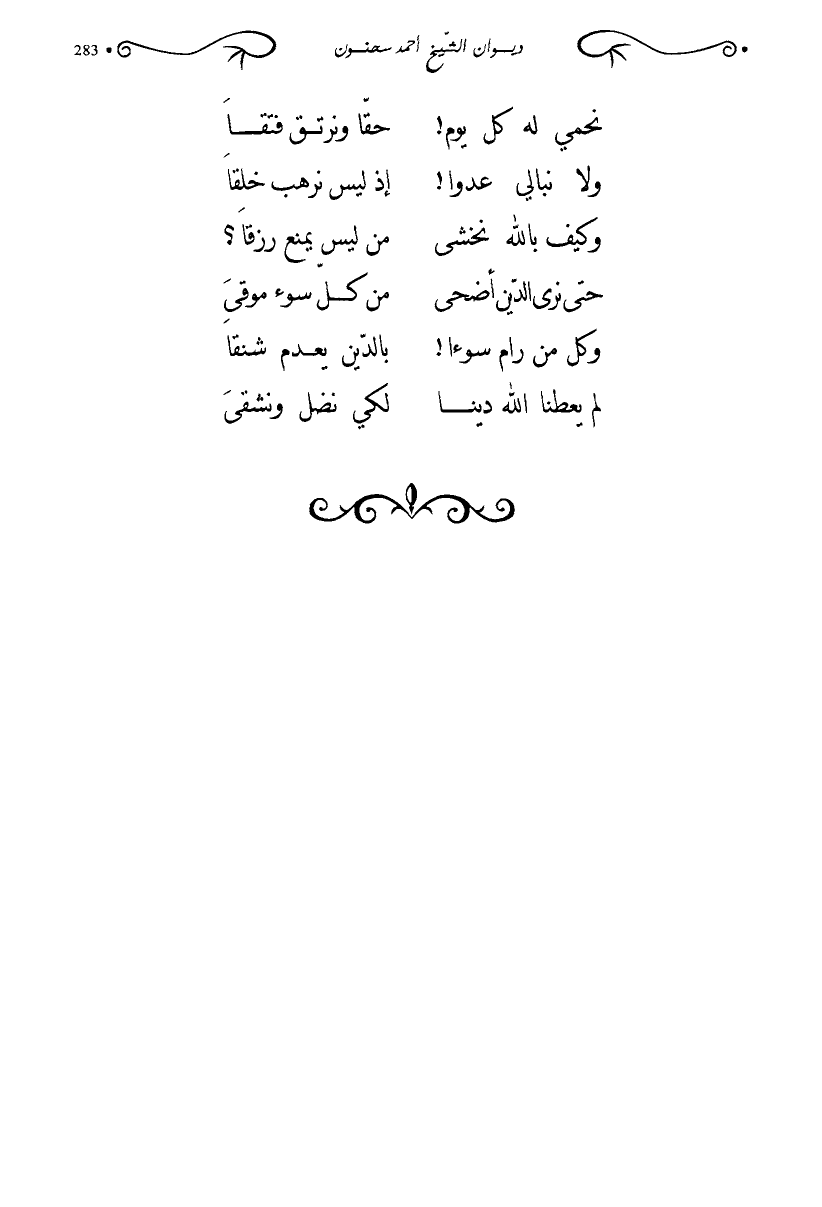 ديوان الشّيخ أحمد سحنون 283
نحمي له كل يوم! حقّا ونرتق فتقاَ
ولا نبالي عدوا! إذ ليس نرهب خلقاَ
وكيف بالله نخشى من ليس يمنع رزقاَ؟
حتى نرى الدّين أضحى من كلّ سوء موقىَ
وكل من رام سوءا! بالدّين يعدم شنقاَ
لم يعطنا الله دينا لكي نضل ونشقىَ